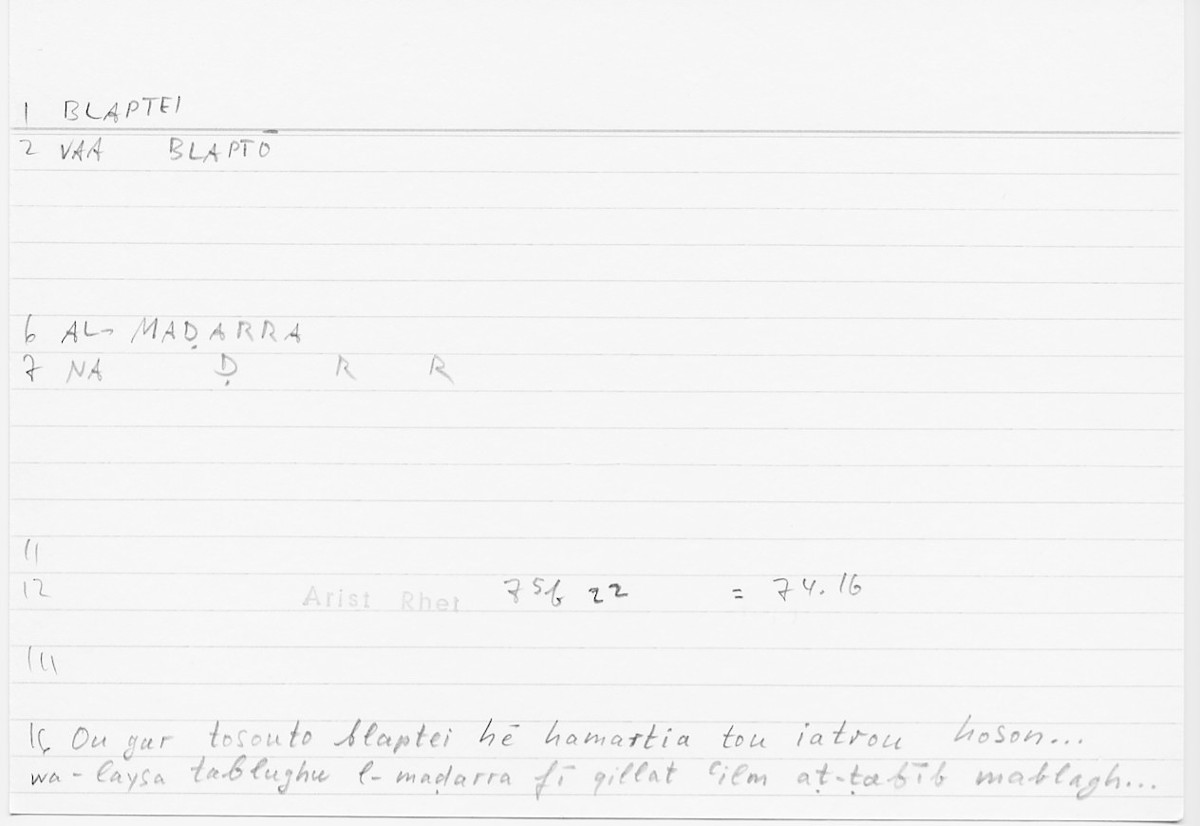 1 BLAPTEI
2 VAA BLAPTŌ
6 AL- MAḌARRA
7 NA Ḍ R R
11
12 Arist Rhet 75b 22 = 74.16
14
15 Ou gar tosouto blaptei hē hamartia tou iatrou hoson...
wa-laysa tablughu l-maḍarra fī qillat ʿilm aṭ-ṭabīb mablagh...